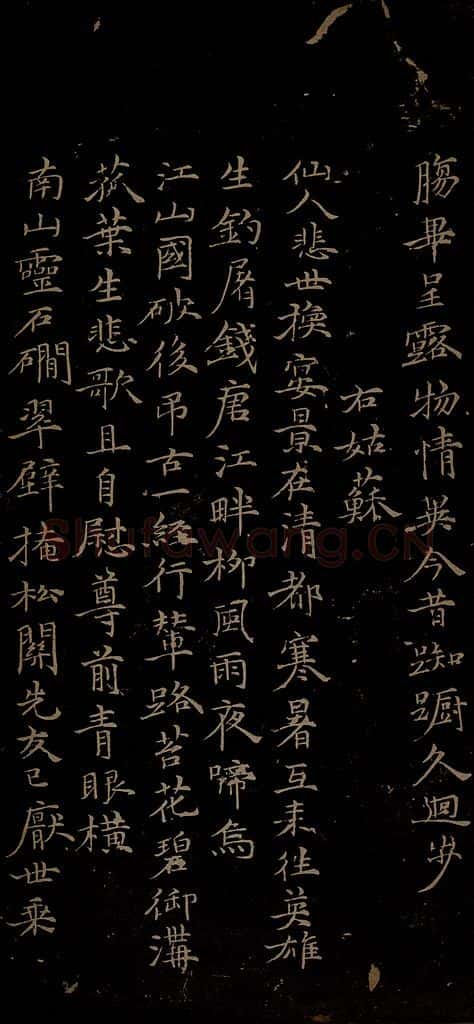 膓畢呈露物情今昔踟蹰久迴步
右姑蘇
仙人悲世換宴景在清都寒暑互来往英雄
生釣屠錢唐江畔柳風雨夜蹄烏
江山國破後吊古一経行輦路苔花碧御溝
菰葉生悲歌且自慰尊前青眼橫
南山靈石磵翠壁掩松關先友已厭世乗
Shufawang.CN